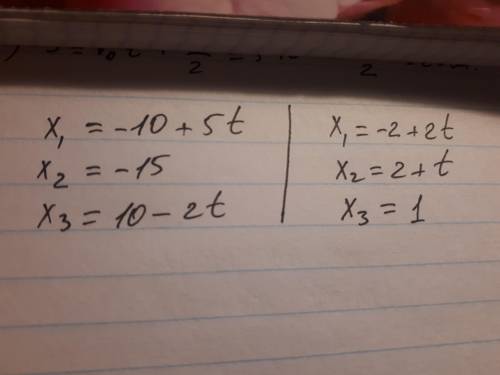 x₁ = -10 + 5t
x₂ = -15
x₃ = 10 - 2t
x₁ = -2 + 2t
x₂ = 2 + t
x₃ = 1